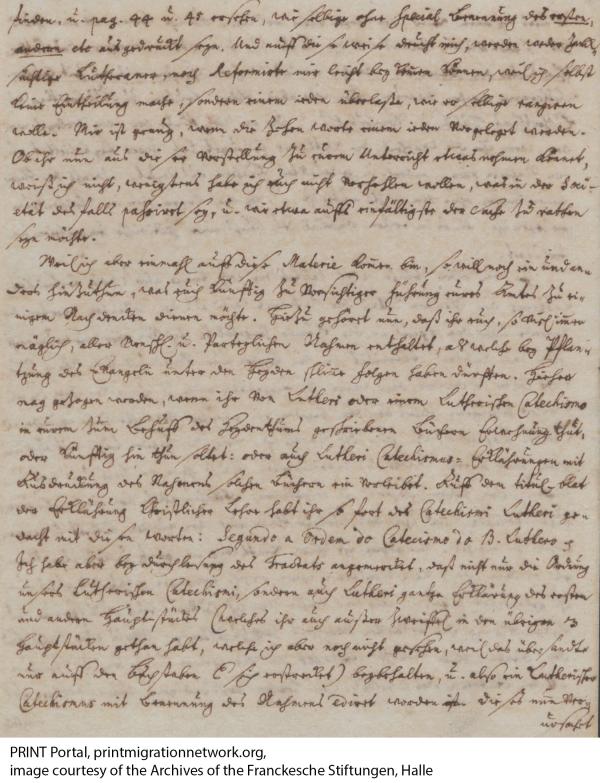 finden, u. pag. 44 u. 45 ersehen, wie selbige ohne special Benennung des ersten,
andern etc ausgedruckt seyn. Und auff diese weise deucht mich, werden weder
Lutheraner, noch Reformirte mir leicht bey können, weil ich selbst
keine Eintheilung mache, sondern einem ieden überlasse, wie er selbige rangiren
wolle. Mir ist genug, wenn die Zehen worte einem ieden vorgeleget werden.
Ob ihr nun aus dieser Vorstellung zu eurem Unterricht etwas nehmen könnet,
weiß ich nicht, wenigstens habe ich euch nicht verhehlen wollen, was in der Soci-
etät des falls passiret sey, u. wie etwa auffs einfältigste der Sache zu rathen
seyn möchte.
Weil ich aber einmahl auff diese Materie kommen bin, so will noch ein und an-
ders hinzuthun, was euch künfftig zu vorsichtiger Führung eures Amtes zu ei-
nigem Nachdencken dienen möchte. Hiezu gehöret nun, daß ihr euch, so viel immer
möglich, aller Menschl. u. Partheylichen Nahmen enthaltet, als welche bey Pflan-
tzung des Evangelii unter den Heyden schlimme folgen haben dürfften. Hieher
mag gezogen werden, wenn ihr von Lutheri oder einem Lutherischen Catechismo
in eurem zum Behuff des Heydenthums geschriebenen Büchern Erwehnung thut,
oder künfftig hin thun soltet: oder auch Lutheri Catechismus-Erklährungen mit
Ausdruckung des Nahmens solchen Büchern ein verleibet. Auff dem titul-blat
der Erklährung Christlicher Lehre habt ihr so fort des Catechismi Lutheri ge-
dacht mit diesen worten: Segundo a Ordem do Catecismo do B. Luthero
Ich habe aber bey durchlesung des Tractats angemercket, daß nicht nur die Ordnung
unsers Lutherischen Catechismi, sondern auch Lutheri gantze Erklärung des ersten
und andern Hauptstückes (welches ihr auch ausser Zweiffel in den übrigen 3
Hauptstücken gethan habt, welche ich aber noch nicht gesehen, weil das übersandte
nur auff den Buchstaben C sich erstrecket) beybehalten, u. also ein Lutherischer
Catechismus mit Benennung des Nahmens worden ist. dieses nun
ursachet
PRINT Portal, printmigrationnetwork.org,
image courtesy of the Archives of the Franckesche Stiftungen, Halle